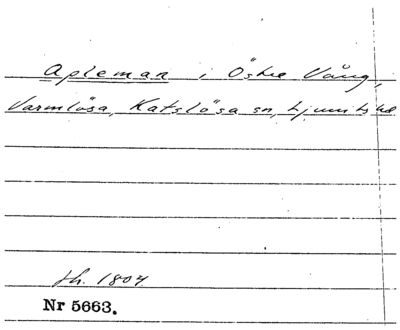 Apleman i Östre Vång,
Varmlösa, Katslösa sn, Ljunits hd
sk. 1807
Nr 5663.